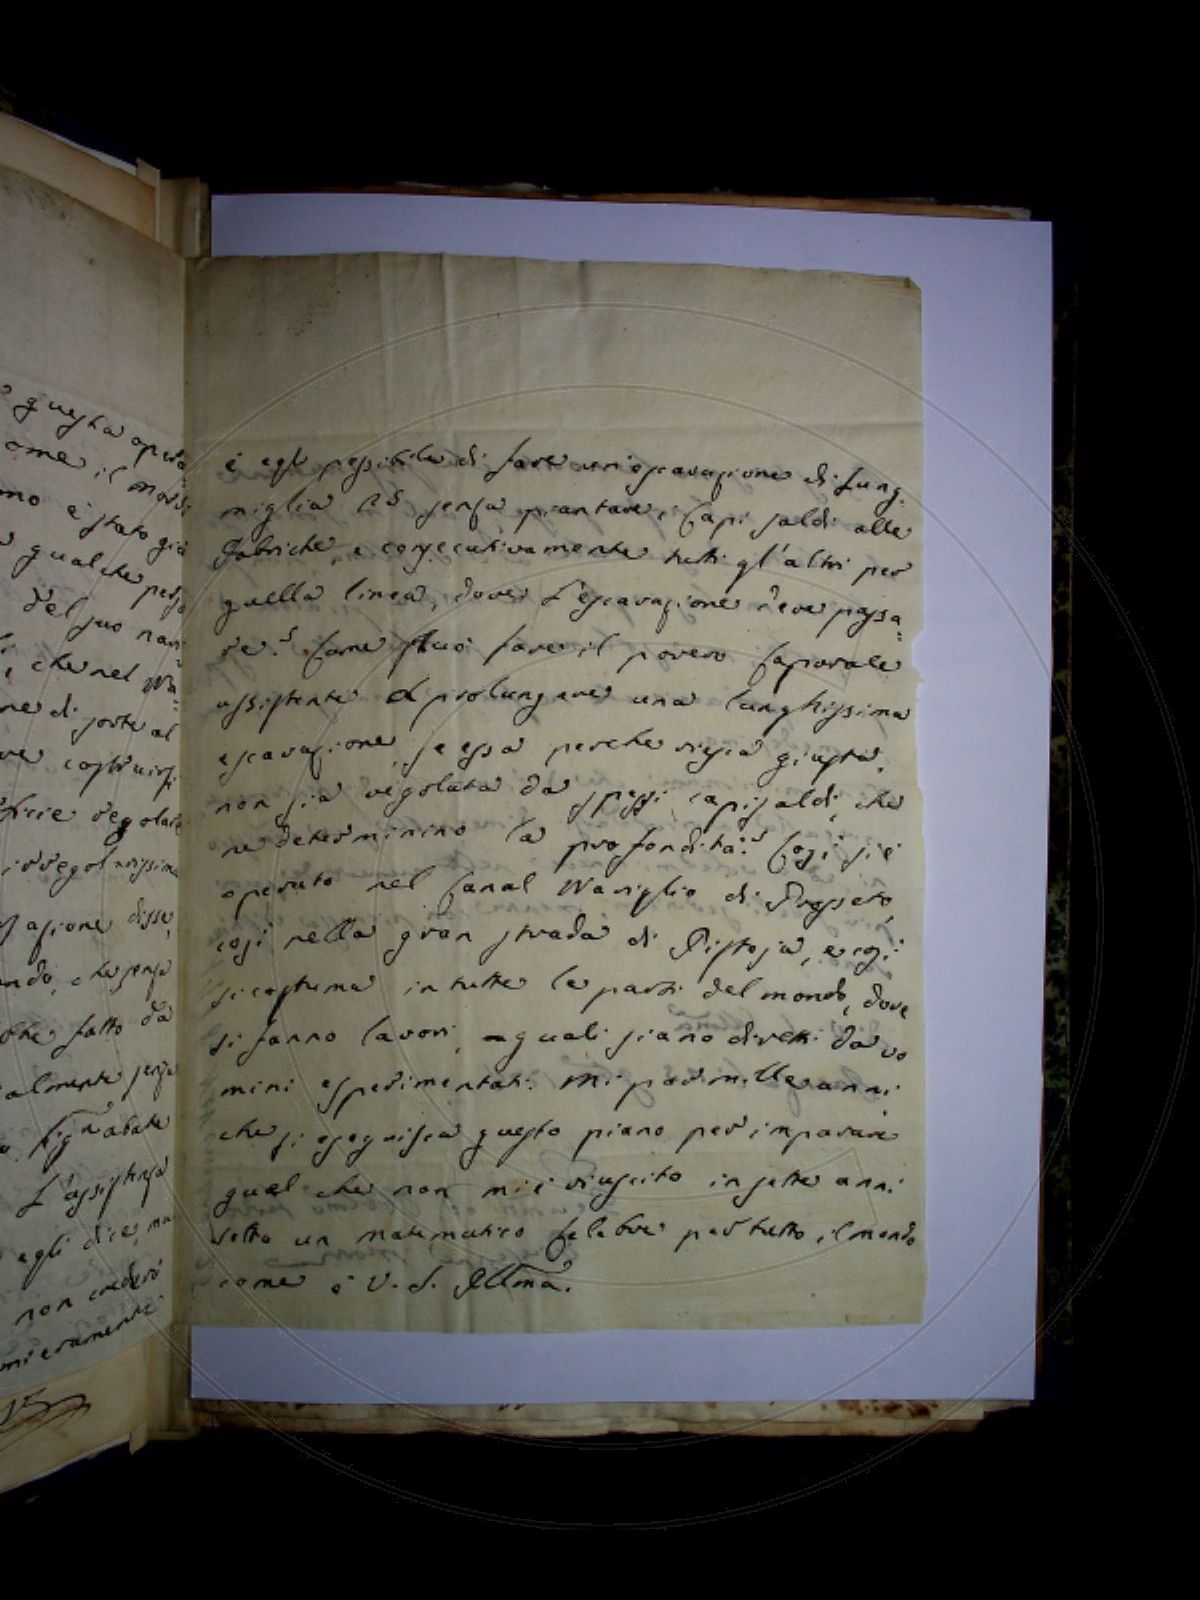 questa opera
ome il modo
mo è stato già
qualche pezzo
del suo navi=
che nel Na=
ne di sorte al
ve costruirsi
regolari
irregolarissima
azione disse,
ndo, che senza
fatto da
almente senza
Sig.r Abate
L'assistenza
egli dice, ma
non crederò
è egli possibile di fare un'escavazione di lung.
miglia 25 senza piantare i Capi saldi alle
fabriche e consecutivamente tutti gl'altri per
quella linea, dove l'escavazione deve passa=
re? Come può fare il povero Caporale
assistente a prolungare una lunghissima
escavazione, se essa perche riesca giusta,
non sia regolata da spessi capisaldi, che
ne determinino la profondità? Così si è
operato nel Canal Naviglio di Ombrone,
così nella gran strada di Pistoja, e così
si costuma in tutte le parti del mondo, dove
si fanno lavori, quali siano diretti da uo
mini esperimentati. Mi par mille anni
che si eseguisca questo piano per imparare
quel che non mi è riuscito in sette anni
sotto un matematico celebre per tutto il mondo
come è V. S. Ill.ma.